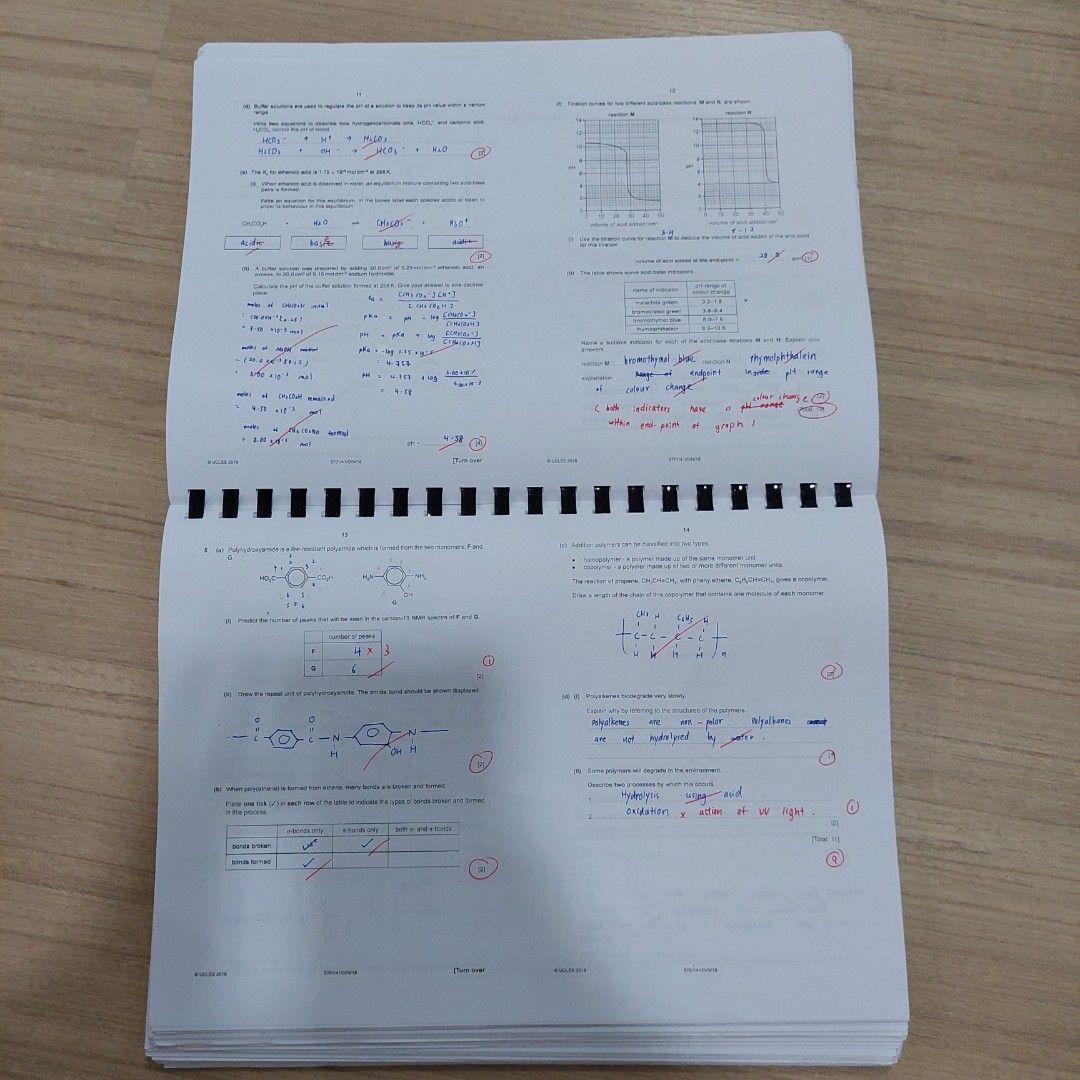 11
(d) Buffer solutions are used to regulate the pH of a solution to keep its pH value within a narrow
range.
Write two equations to describe how hydrogencarbonate ions, HCO₃⁻, and carbonic acid,
H₂CO₃, control the pH of blood.
HCO₃⁻ + H⁺ → H₂CO₃
H₂CO₃ + OH⁻ → HCO₃⁻ + H₂O
[2]
(e) The Kₐ for ethanoic acid is 1.75 × 10⁻⁵ mol dm⁻³ at 298 K.
(i) When ethanoic acid is dissolved in water, an equilibrium mixture containing two acid-base
pairs is formed.
Write an equation for this equilibrium. In the boxes label each species acidic or basic to
show its behaviour in this equilibrium.
CH₃CO₂H + H₂O ⇌ CH₃CO₂⁻ + H₃O⁺
[2]
(ii) A buffer solution was prepared by adding 30.0 cm³ of 0.25 mol dm⁻³ ethanoic acid, an
excess, to 20.0 cm³ of 0.15 mol dm⁻³ sodium hydroxide.
Calculate the pH of the buffer solution formed at 298 K. Give your answer to one decimal
place.
moles of CH₃CO₂H initial
= 7.50 × 10⁻³ mol
moles of NaOH
= 3.00 × 10⁻³ mol
moles of CH₃CO₂H remained
= 4.50 × 10⁻³ mol
moles of CH₃CO₂Na formed
= 3.00 × 10⁻³ mol
Kₐ = [CH₃CO₂⁻][H⁺] / [CH₃CO₂H]
pKa = pH - log [CH₃CO₂⁻] / [CH₃CO₂H]
pH = pKa + log [CH₃CO₂⁻] / [CH₃CO₂H]
pKa = -log 1.75 × 10⁻⁵
= 4.757
pH = 4.757 + log 3.00×10⁻³ / 4.50×10⁻³
= 4.58
pH = 4.58
[4]
© UCLES 2018
[Turn over
12
(f) Titration curves for two different acid-base reactions, M and N, are shown.
reaction M
reaction N
14
12
10
8
6
4
2
0
pH
0 10 20 30 40 50
volume of acid added / cm³
14
12
10
8
6
4
2
0
pH
0 10 20 30 40 50
volume of acid added / cm³
(i) Use the titration curve for reaction M to deduce the volume of acid added at the end-point
for this titration.
volume of acid added at the end-point = cm³ [1]
(ii) The table shows some acid-base indicators.
name of indicator
pH range of
colour change
malachite green 0.2–1.8
bromocresol green 3.8–5.4
bromothymol blue 6.0–7.6
thymolphthalein 9.3–10.6
Name a suitable indicator for each of the acid-base titrations M and N. Explain your
answers.
reaction M bromothymol blue reaction N thymolphthalein
explanation range of endpoint inside pH range
of colour change
( both indicators have a pH range colour change
within end-point of graph )
© UCLES 2018
13
5 (a) Polyhydroxyamide is a fire-resistant polyamide which is formed from the two monomers, F and
G.
HO₂C CO₂H
F
H₂N NH₂
OH
G
(i) Predict the number of peaks that will be seen in the carbon-13 NMR spectra of F and G.
number of peaks
F 4 × 3
G 6
1
[2]
(ii) Draw the repeat unit of polyhydroxyamide. The amide bond should be shown displayed.
O O
C C N N
H OH H
[2]
(b) When poly(ethene) is formed from ethene, many bonds are broken and formed.
Place one tick (✓) in each row of the table to indicate the types of bonds broken and formed
in this process.
σ-bonds only π-bonds only both σ- and π-bonds
bonds broken ✓
bonds formed ✓
[2]
© UCLES 2018
[Turn over
14
(c) Addition polymers can be classified into two types.
• homopolymer - a polymer made up of the same monomer unit
• copolymer - a polymer made up of two or more different monomer units
The reaction of propene, CH₃CH=CH₂, with phenylethene, C₆H₅CH=CH₂, gives a copolymer.
Draw a length of the chain of this copolymer that contains one molecule of each monomer.
CH₃ H C₆H₅ H
C - C - C - C
H H H H n
[2]
(d) (i) Polyalkenes biodegrade very slowly.
Explain why by referring to the structures of the polymers.
Polyalkenes are non-polar. Polyalkenes
are not hydrolysed by water.
(ii) Some polymers will degrade in the environment.
Describe two processes by which this occurs.
1 Hydrolysis using acid
2 oxidation × action of UV light.
1
[2]
[Total: 11]
9
© UCLES 2018